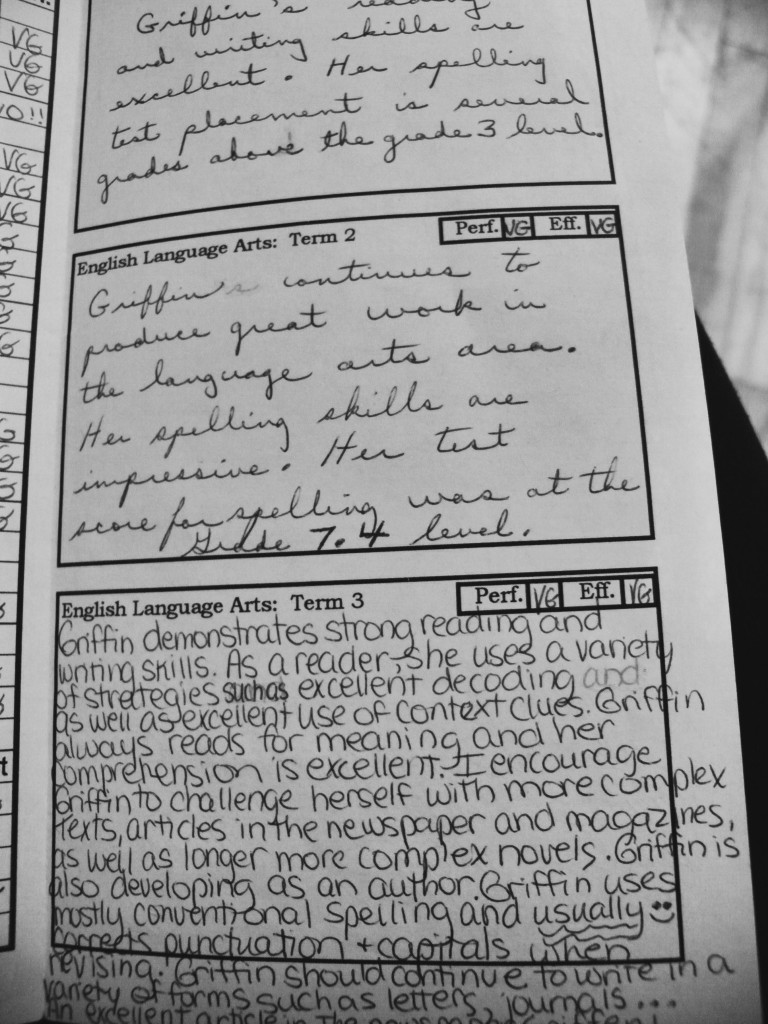 VG
VG
VG
10!!
VG
VG
VG
Griffin's reading
and writing skills are
excellent. Her spelling
test placement is several
grades above the grade 3 level.
English Language Arts: Term 2 Perf. VG Eff. VG
Griffin's continues to
produce great work in
the language arts area.
Her spelling skills are
impressive. Her test
score for spelling was at the
Grade 7.4 level.
English Language Arts: Term 3 Perf. VG Eff. VG
Griffin demonstrates strong reading and
writing skills. As a reader, she uses a variety
of stretegies such as excellent decoding and
as well as excellent use of context clues. Griffin
always reads for meaning and her
comprehension is excellent. I encourage
Griffin to challenge herself with more complex
texts, articles in the newspaper and magazines,
as well as longer more complex novels. Griffin is
also developing as an author. Griffin uses
mostly conventional spelling and usually
corrects punctuation + capitals when
revising. Griffin should continue to write in a
variety of forms such as letters, journals...
An excellent article in the newspaper